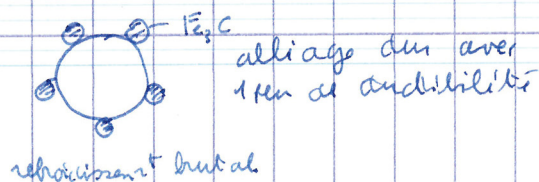 Fe₃C
alliage dur avec
1 peu de ductilité
refroidissement brutal